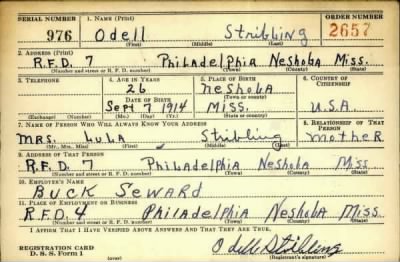 SERIAL NUMBER 1. NAME (Print) ORDER NUMBER
976 Odell Stribling 2657
(First) (Middle) (Last)
2. ADDRESS (Print)
R.F.D. 7 Philadelphia Neshoba Miss.
(Number and street or R. F. D. number) (Town) (County) (State)
3. TELEPHONE 4. AGE IN YEARS 5. PLACE OF BIRTH 6. COUNTRY OF CITIZENSHIP
26 Neshoba
DATE OF BIRTH (Town or county)
Sept 7 1914 Miss. U.S.A.
(Exchange) (Number) (Mo.) (Day) (Yr.) (State or country)
7. NAME OF PERSON WHO WILL ALWAYS KNOW YOUR ADDRESS 8. RELATIONSHIP OF THAT PERSON
Mrs. Lula Stribling Mother
(Mr., Mrs., Miss) (First) (Middle) (Last)
9. ADDRESS OF THAT PERSON
R.F.D. 7 Philadelphia Neshoba Miss
(Number and street or R. F. D. number) (Town) (County) (State)
10. EMPLOYER'S NAME
Buck Seward
11. PLACE OF EMPLOYMENT OR BUSINESS
R.F.D. 4 Philadelphia Neshoba Miss.
(Number and street or R. F. D. number) (Town) (County) (State)
I AFFIRM THAT I HAVE VERIFIED ABOVE ANSWERS AND THAT THEY ARE TRUE.
REGISTRATION CARD
D. S. S. Form 1 Odell Stribling
(Registrant's signature)